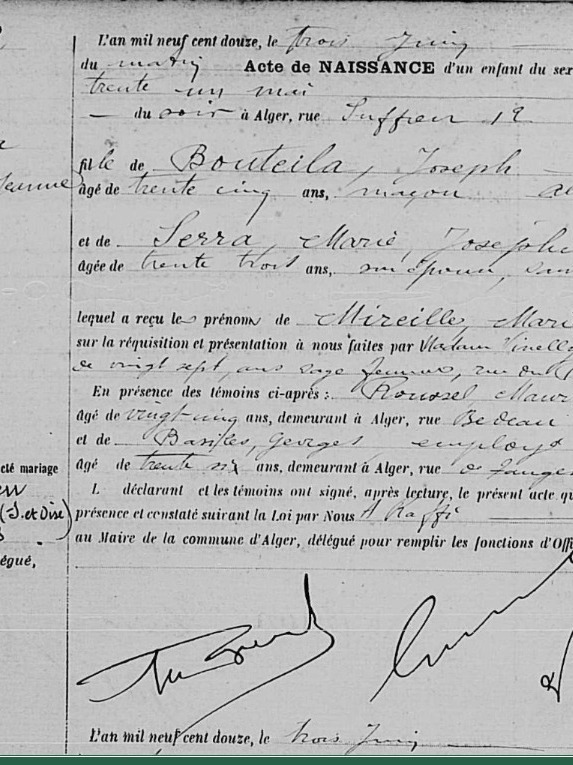 L'an mil neuf cent douze, le trois Juin
du matin Acte de NAISSANCE d'un enfant du sex
trente un mai
du soir à Alger, rue Suffren 12
fille de Bouteila, Joseph
Jeanne âgé de trente cinq ans, maçon
et de Serra, Marie, Josephe
âgée de trente trois ans, son épouse, san
lequel a reçu les prénoms de Mireille, Mari
sur la réquisition et présentation à nous faites par Madame
de vingt sept ans sage femme, rue
En présence des témoins ci-après : Roussel Maur
âgé de vingt cinq ans, demeurant à Alger, rue Bedeau
et de Georges employé
cté mariage âgé de trente six ans, demeurant à Alger, rue
L déclarant et les témoins ont signé, après lecture, le présent acte qu
(S. et Oise) présence et constaté suivant la Loi par Nous
égué, au Maire de la commune d'Alger, délégué pour remplir les fonctions d'Offi
L'an mil neuf cent douze, le trois Juin